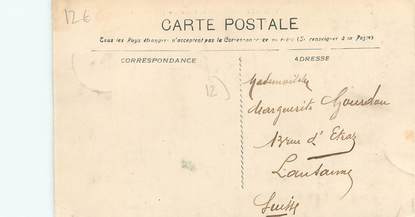 12€
CARTE POSTALE
Tous les Pays étrangers n'acceptent pas la Correspondance au recto (Se renseigner à la Poste)
CORRESPONDANCE
ADRESSE
12
Mademoiselle
Marguerite Gourdou
13 rue d'Etraz
Lausanne
Suisse